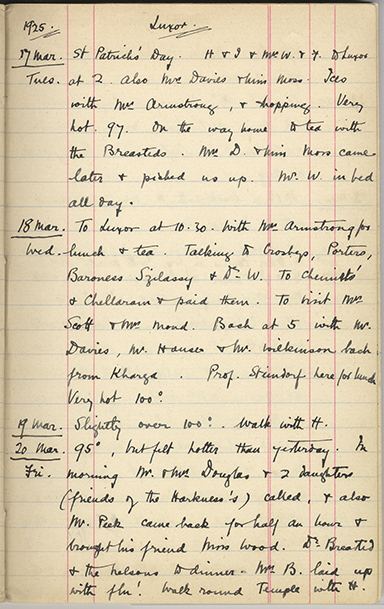 1925. Luxor.
17 Mar. St Patrick's Day. H & I & Mr W. & F. to Luxor
Tues. at 2. Also Mrs Davies & Miss Moss. Ices
with Mrs Armstrong, & shopping. Very
hot. 97. On the way home to tea with
the Breasteds. Mrs D. & Miss Moss came
later & picked us up. Mr. W. in bed
all day.
18 Mar. To Luxor at 10.30. With Mrs Armstrong for
Wed. lunch & tea. Talking to Crosbys, Porters,
Baroness Szilassy & Dr W. To Chemists'
& Chellaram & paid them. To visit Mrs
Scott & Mrs Mond. Back at 5 with Mr.
Davies, Mr. Hauser & Mr. Wilkinson back
from Kharga. Prof. Steindorf here for lunch
Very hot 100°.
19 Mar. Slightly over 100°. Walk with H.
20 Mar. 95°, but felt hotter than yesterday. In
Fri. morning Mr. & Mrs Douglas & 2 daughters
(friends of the Harkness's) called, & also
Mr. Peek came back for half an hour &
brought his friend Miss Wood. Dr Breasted
& the Nelsons to dinner - Mrs B. laid up
with flu! Walk round Temple with H.